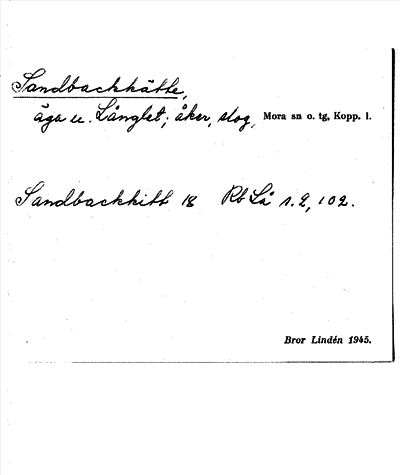 Sandbackhätte,
äga u. Långlet; åker, slog. Mora sn o. tg, Kopp. l.
Sandbackhitt 18 Rb Lå s. 2, 102.
Bror Lindén 1945.